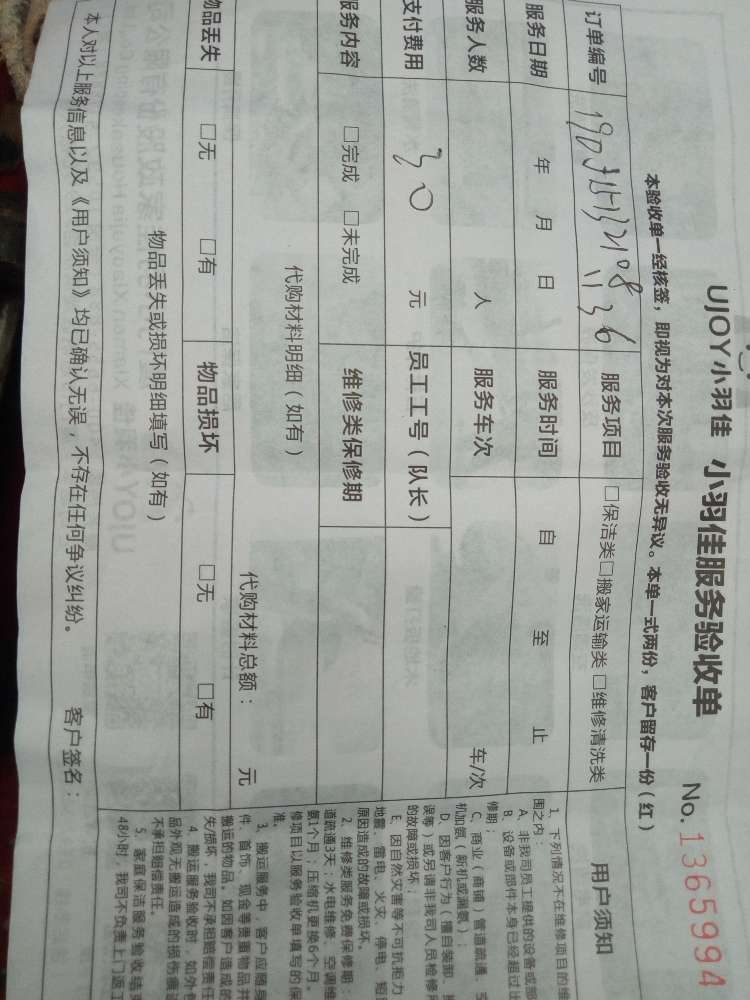 UJOY小羽佳 小羽佳服务验收单
No. 1365994
本验收单一经核签，即视为对本次服务验收无异议。本单一式两份，客户留存一份（红）
订单编号 服务项目 □保洁类□搬家运输类□维修清洗类
1136
服务日期 年 月 日 服务时间 自 至 止
服务人数 人 服务车次 车/次
支付费用 30 元 员工工号（队长）
服务内容 □完成 □未完成 维修类保修期
代购材料明细（如有） 代购材料总额： 元
物品丢失 □无 □有 物品损坏 □无 □有
物品丢失或损坏明细填写（如有）
本人对以上服务信息以及《用户须知》均已确认无误，不存在任何争议纠纷。 客户签名：
用户须知
1、下列情况不在维修项目的维
围之内：
A、非我司员工提供的设备或部
B、设备或部件本身已经超过
修期；
C、商业（商铺）管道疏通、空
机加氨（新机或漏氨）；
D、因客户行为（擅自装卸、
误等）或另请非我司人员检修
的故障或损坏；
E、因自然灾害等不可抗拒力
地震、雷电、火灾、停电、短
原因造成的故障或损坏。
2、维修类服务免费保修期：
道疏通3天；水电维修、空调维
氨1个月；压缩机更换6个月。
修项目以服务验收单填写的保
准。
3、搬运服务中，客户应随身
件、首饰、现金等贵重物品并
搬运的物品。如因客户造成的
失/损坏，我司不承担赔偿责任
4、搬运服务验收时，如外包
品外观无搬运造成的损伤痕迹
不承担赔偿责任。
5、家庭保洁服务验收结束
48小时，我司不负责上门返工